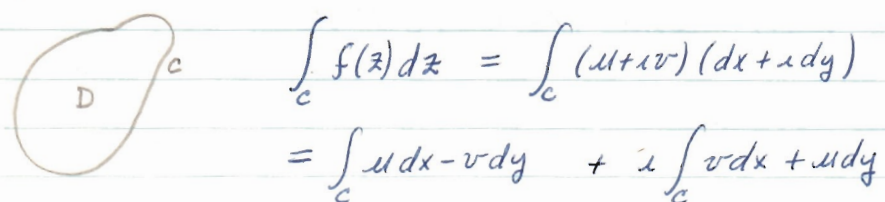 D C ∫_C f(z)dz = ∫_C (u+iv)(dx+idy)
= ∫_C udx-vdy + i ∫_C vdx+udy